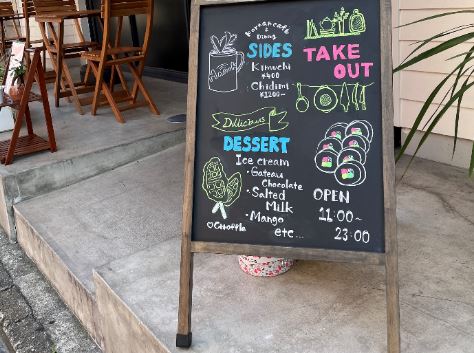 Korean Cafe
&
Dining
SIDES
Kimuchi
¥400
・Chidimi
¥1200~
TAKE
OUT
Delicious
DESSERT
Ice cream
・Gateau
Chocolate
・Salted
Milk
・Mango
etc...
♡Croffle
OPEN
11:00~
23:00